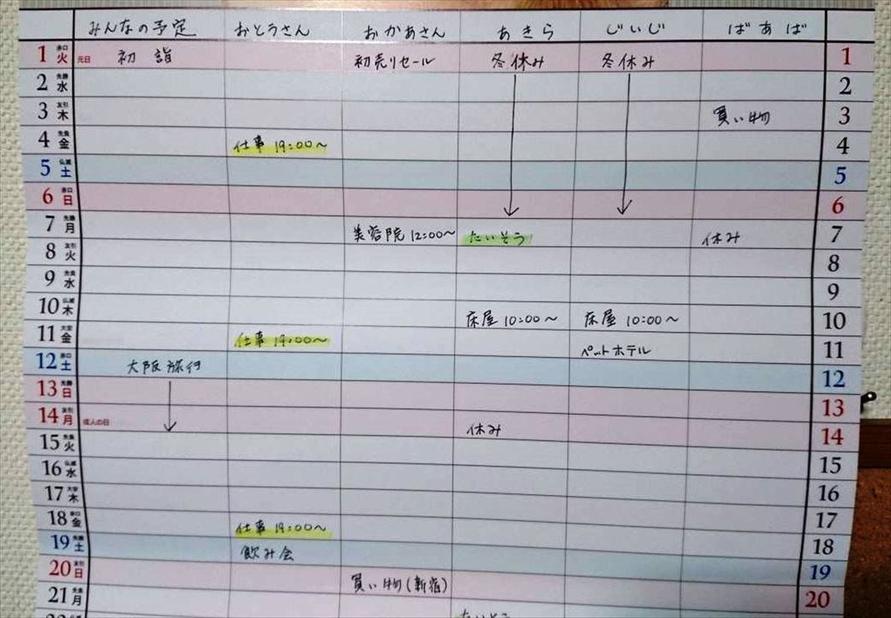 みんなの予定 おとうさん おかあさん あきら じいじ ばあば
1 赤口 火 元日 初詣 初売りセール 冬休み 冬休み 1
2 先勝 水 2
3 友引 木 買い物 3
4 先負 金 仕事 19:00〜 4
5 仏滅 土 5
6 赤口 日 6
7 先勝 月 美容院 12:00〜 たいそう 休み 7
8 友引 火 8
9 先負 水 9
10 仏滅 木 床屋 10:00〜 床屋 10:00〜 10
11 大安 金 仕事 19:00〜 ペットホテル 11
12 赤口 土 大阪旅行 12
13 先勝 日 13
14 友引 月 成人の日 休み 14
15 先負 火 15
16 仏滅 水 16
17 大安 木 17
18 赤口 金 仕事 19:00〜 18
19 先勝 土 飲み会 19
20 友引 日 買い物(新宿) 20
21 先負 月
たいそう